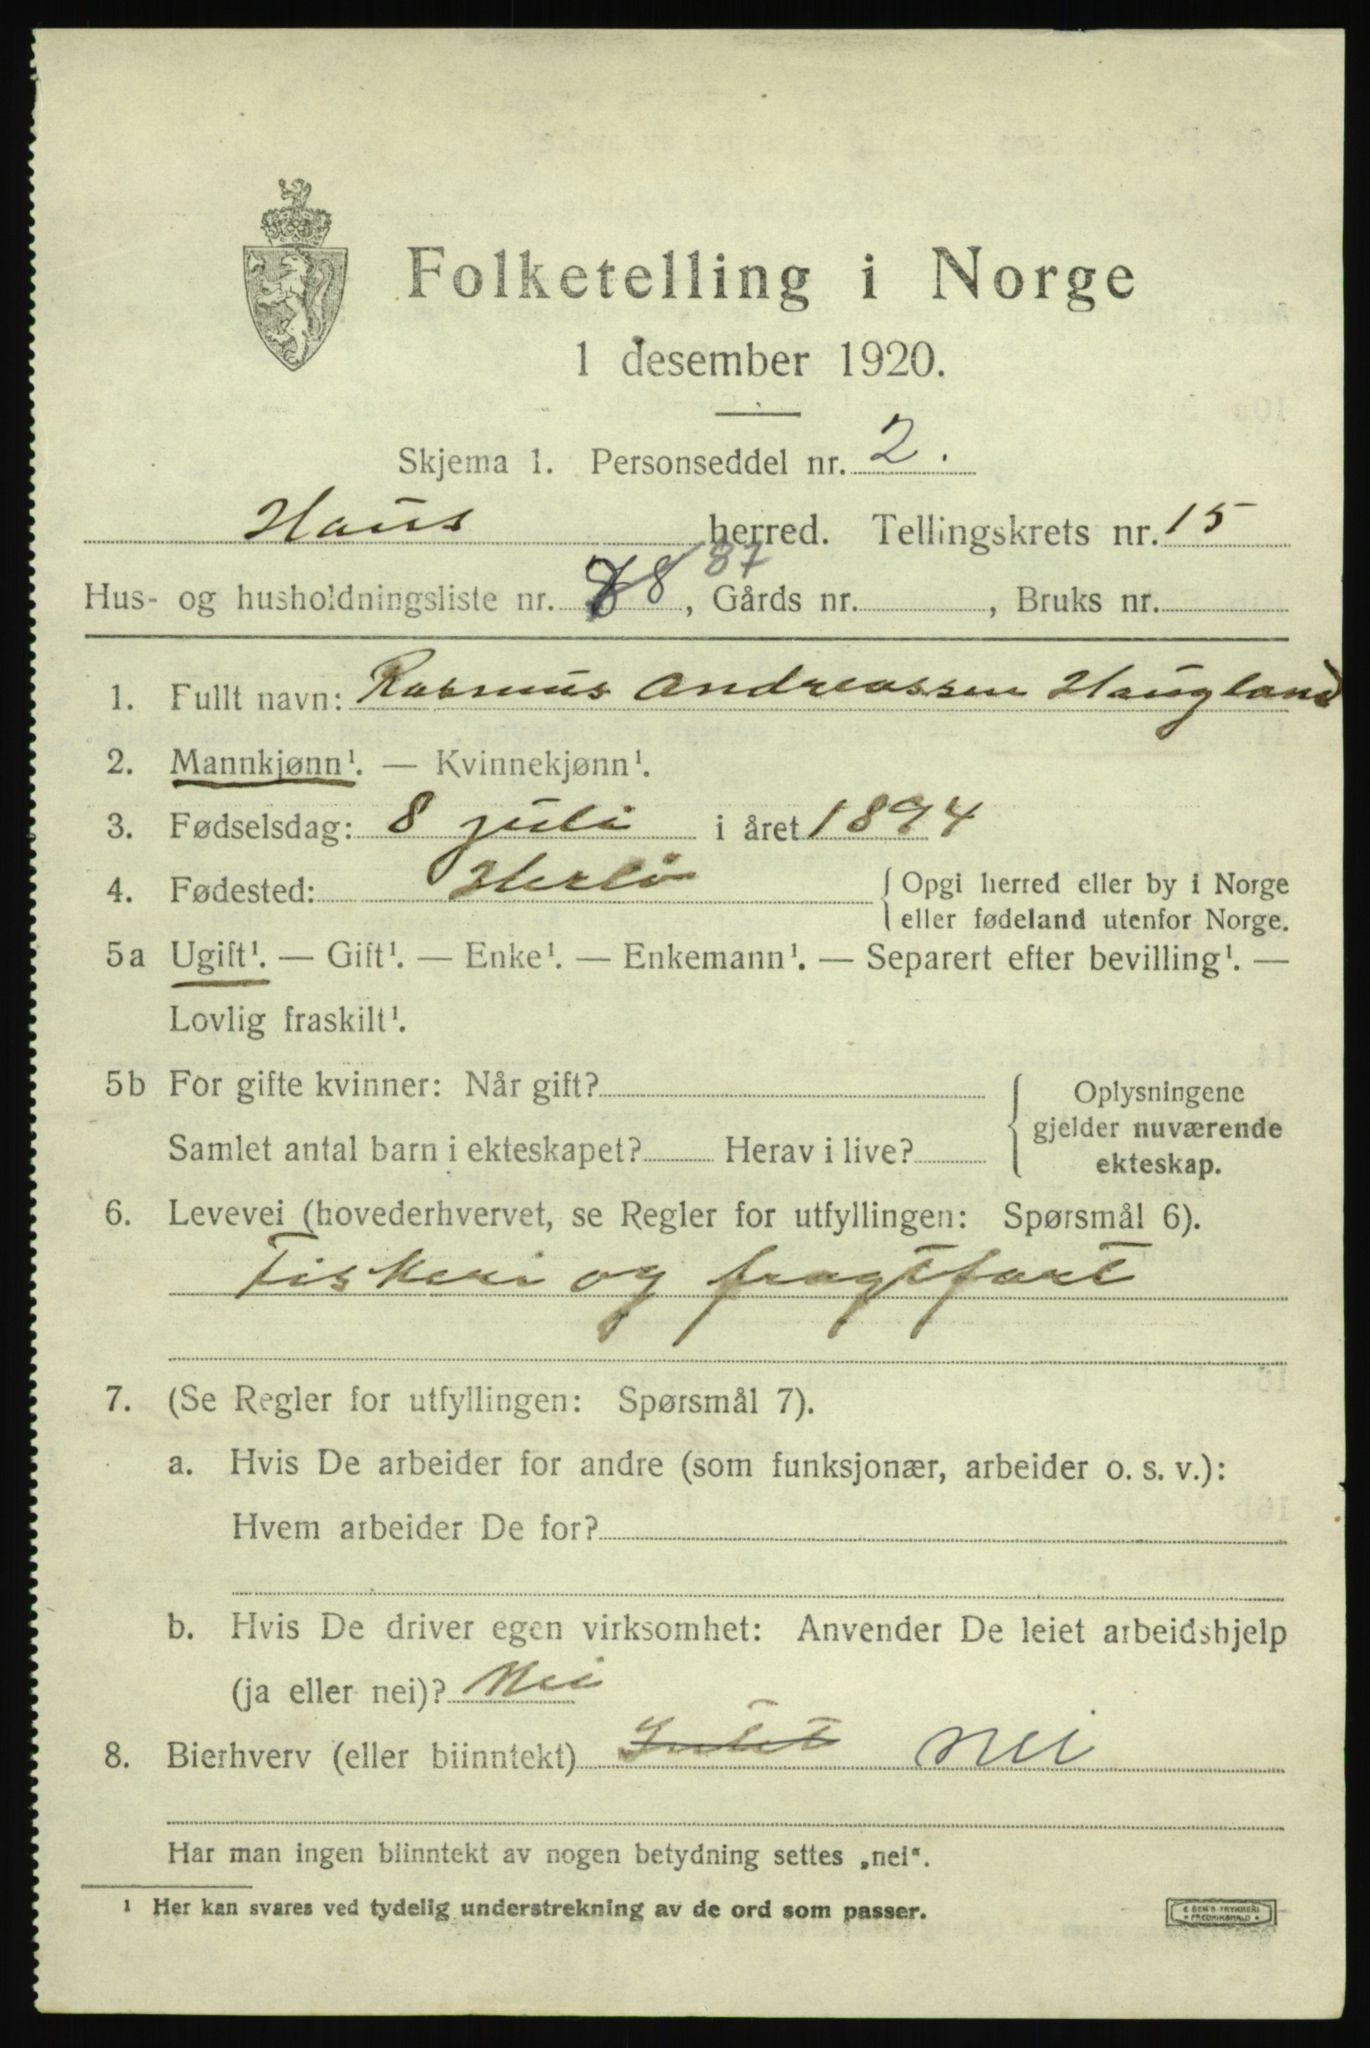 Folketelling i Norge
1 desember 1920.
Skjema 1. Personseddel nr. 2.
Haus herred. Tellingskrets nr. 15
87
Hus- og husholdningsliste nr. 78, Gårds nr. , Bruks nr.
1. Fullt navn: Rasmus Andreassen Haugland
2. Mannkjønn¹. — Kvinnekjønn¹.
3. Fødselsdag: 8 juli i året 1894
4. Fødested: Herlø { Opgi herred eller by i Norge
eller fødeland utenfor Norge.
5a Ugift¹. — Gift¹. — Enke¹. — Enkemann¹. — Separert efter bevilling¹. —
Lovlig fraskilt¹.
5b For gifte kvinner: Når gift? { Oplysningene
gjelder nuværende
Samlet antal barn i ekteskapet? Herav i live? ekteskap.
6. Levevei (hovederhvervet, se Regler for utfyllingen: Spørsmål 6).
Fiskeri og fragtfart
7. (Se Regler for utfyllingen: Spørsmål 7).
a. Hvis De arbeider for andre (som funksjonær, arbeider o. s. v.):
Hvem arbeider De for?
b. Hvis De driver egen virksomhet: Anvender De leiet arbeidshjelp
(ja eller nei)? Nei
8. Bierhverv (eller biinntekt) Intet Nei
Har man ingen biinntekt av nogen betydning settes „nei“.
¹ Her kan svares ved tydelig understrekning av de ord som passer.